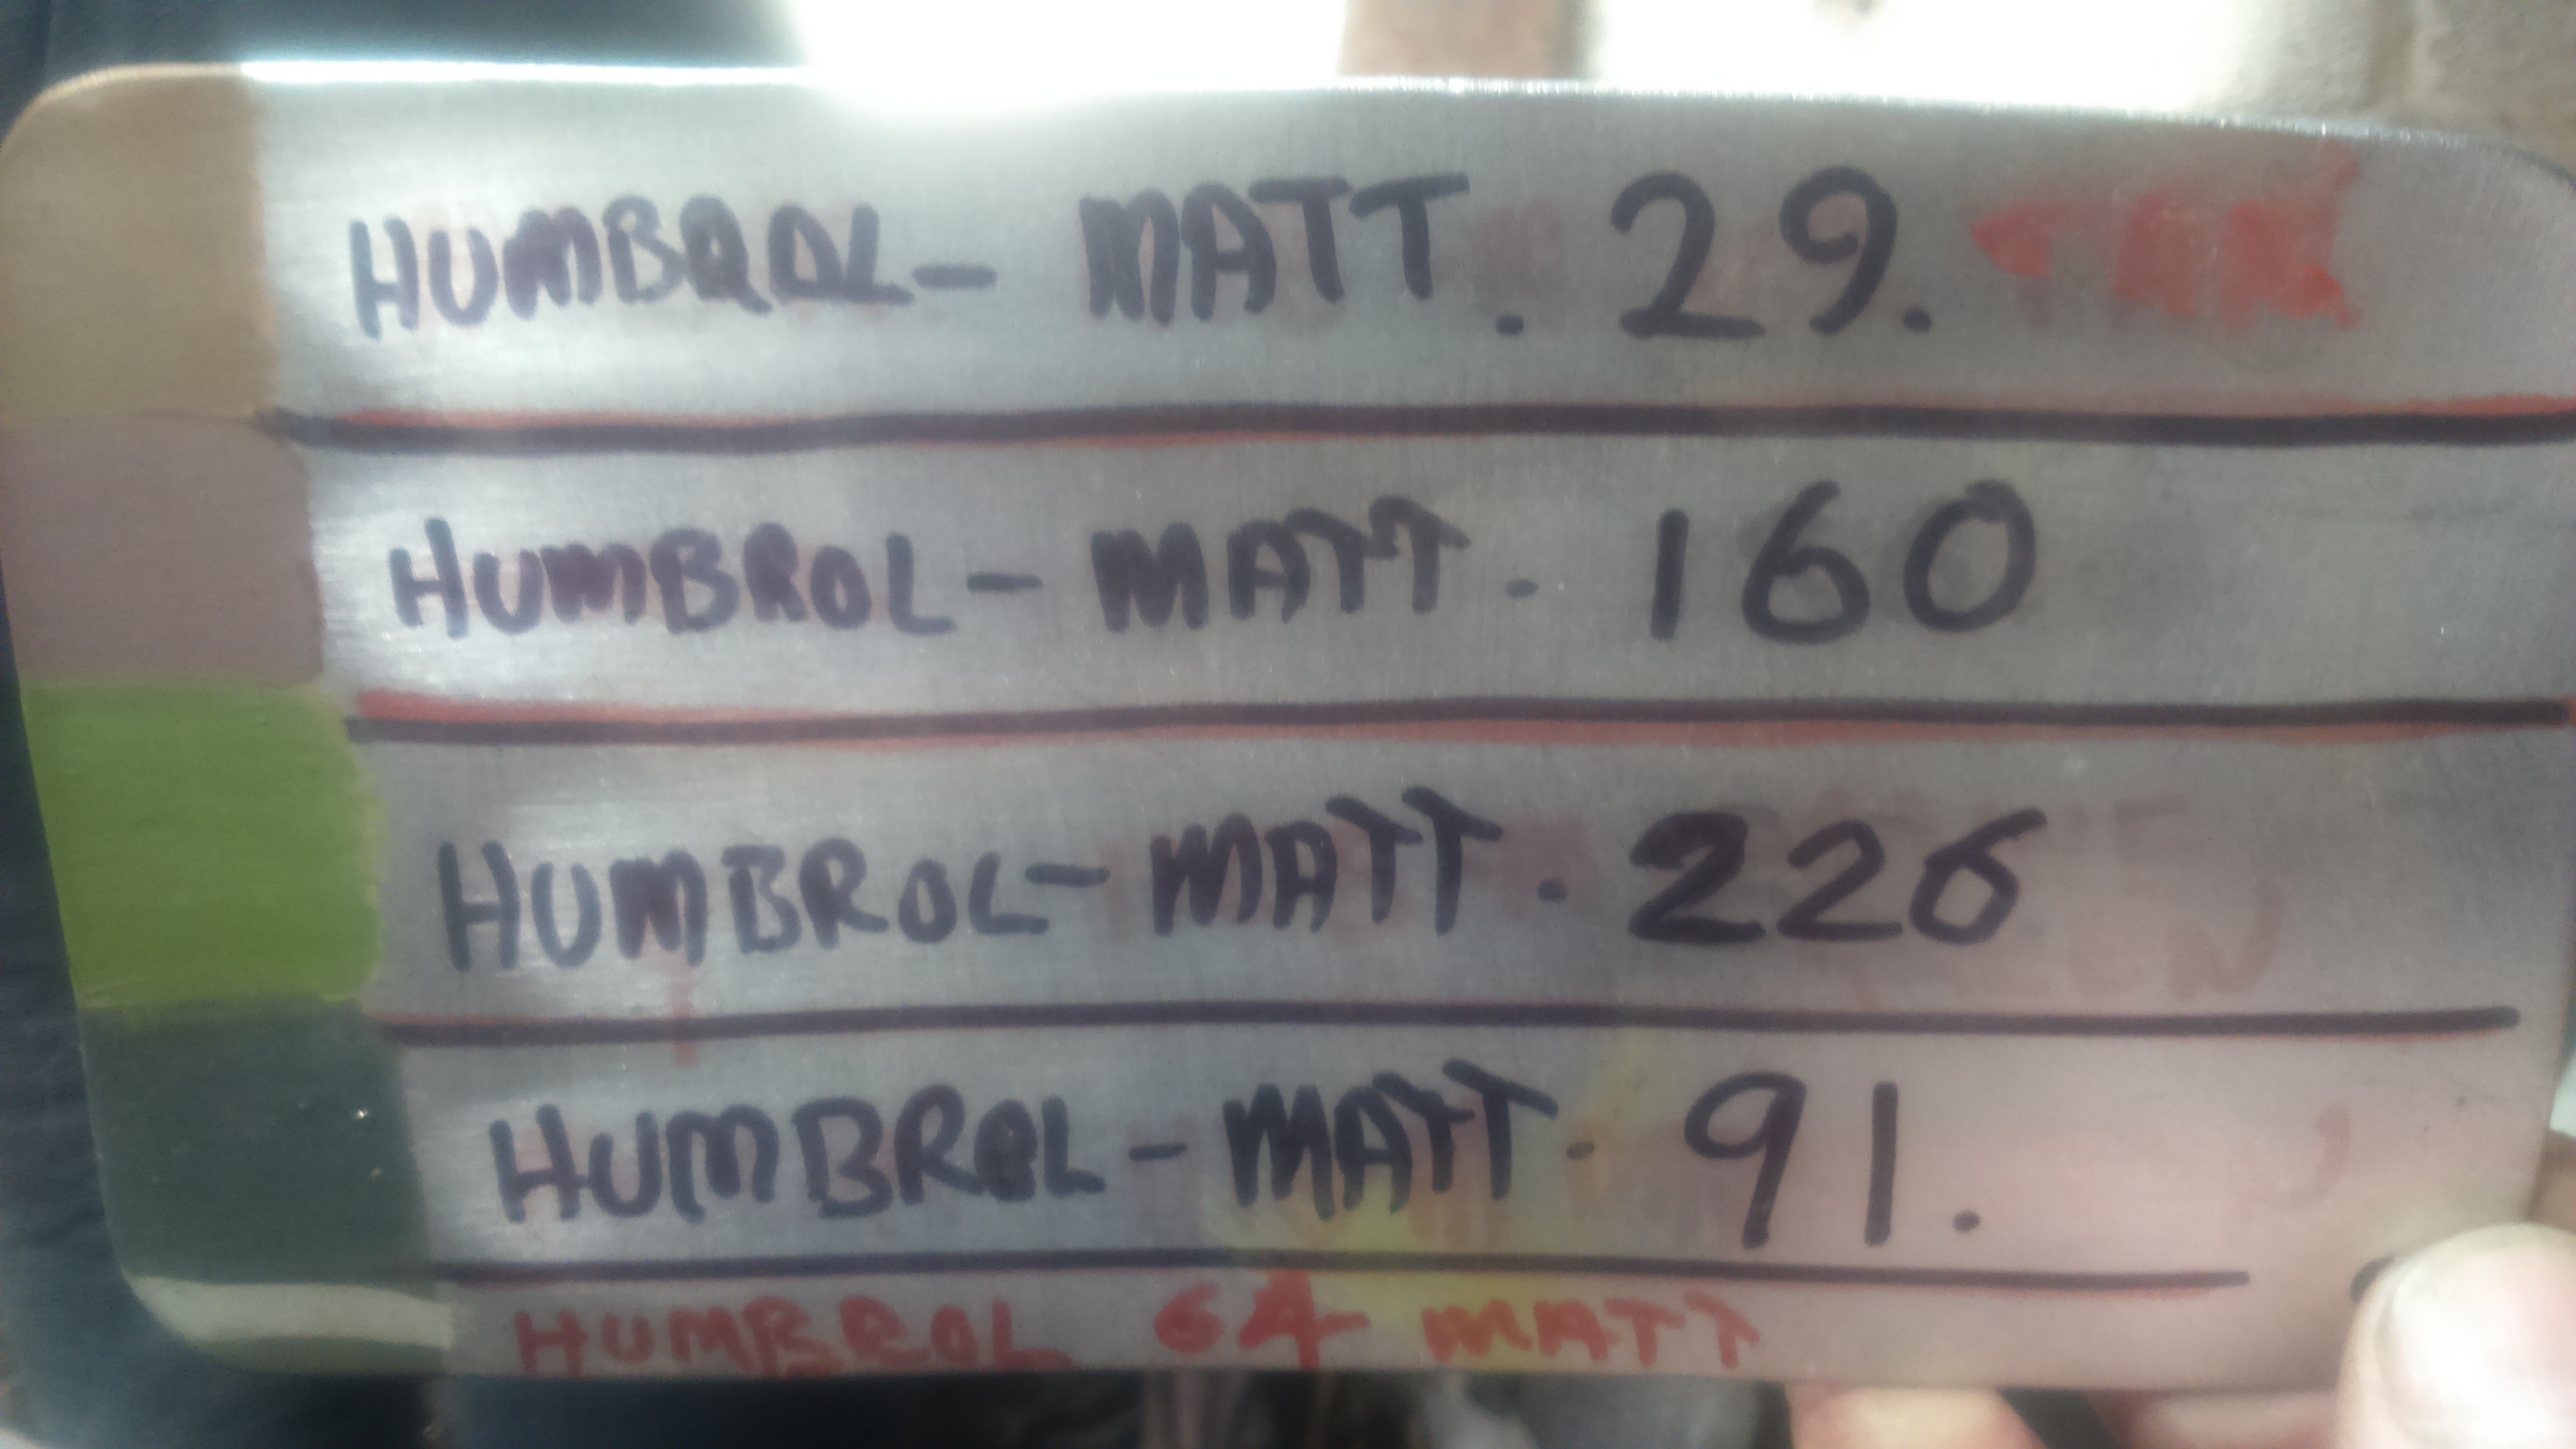 HUMBROL- MATT. 29.
HUMBROL- MATT. 160
HUMBROL-MATT. 226
HUMBROL-MATT. 91.
HUMBROL 64 MATT